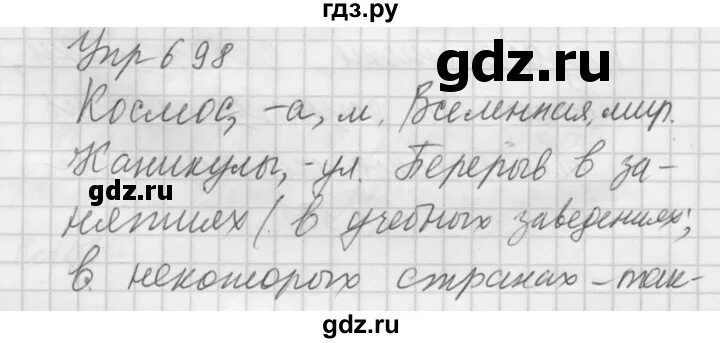 гдз.ру
Упр 698
gdz.ru
Космос, -а, м. Вселенная, мир.
Каникулы, -ул. Перерыв в за-
нятиях (в учебных заведениях;
в некоторых странах - так-
gdz.ru
gdz.ru